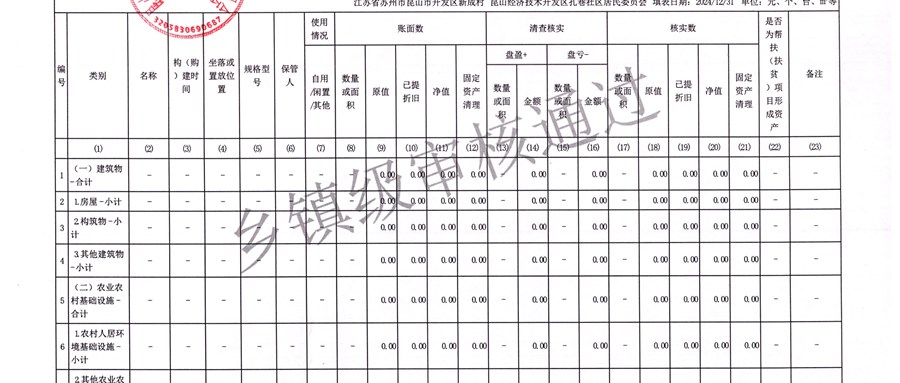 江苏省苏州市昆山市开发区新成村 昆山经济技术开发区孔巷社区居民委员会 填表日期：2024/12/31 单位：元、个、台、亩等
3205830690687
编号 类别 名称 构（购）建时间 坐落或置放位置 规格型号 保管人 使用情况 账面数 清查核实 核实数 是否为帮扶（扶贫）项目形成资产 备注
盘盈+ 盘亏-
自用/闲置/其他 数量或面积 原值 已提折旧 净值 固定资产清理 数量或面积 金额 数量或面积 金额 数量或面积 原值 已提折旧 净值 固定资产清理
(1) (2) (3) (4) (5) (6) (7) (8) (9) (10) (11) (12) (13) (14) (15) (16) (17) (18) (19) (20) (21) (22) (23)
1 （一）建筑物-合计 – – – – – – – 0.00 0.00 0.00 0.00 – 0.00 – 0.00 – 0.00 0.00 0.00 0.00 – –
2 1.房屋-小计 – – – – – – – 0.00 0.00 0.00 0.00 – 0.00 – 0.00 – 0.00 0.00 0.00 0.00 – –
3 2.构筑物-小计 – – – – – – – 0.00 0.00 0.00 0.00 – 0.00 – 0.00 – 0.00 0.00 0.00 0.00 – –
4 3.其他建筑物-小计 – – – – – – – 0.00 0.00 0.00 0.00 – 0.00 – 0.00 – 0.00 0.00 0.00 0.00 – –
5 （二）农业农村基础设施-合计 – – – – – – – 0.00 0.00 0.00 0.00 – 0.00 – 0.00 – 0.00 0.00 0.00 0.00 – –
6 1.农村人居环境基础设施-小计 – – – – – – – 0.00 0.00 0.00 0.00 – 0.00 – 0.00 – 0.00 0.00 0.00 0.00 – –
2.其他农业农
乡镇级审核通过